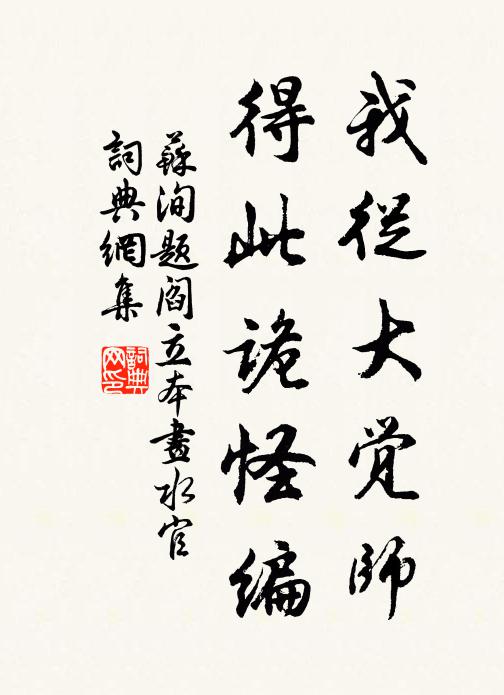 我從大覚師
得此詭怪編
蘇洵題閻立本畫水官
詞典網集
詞典網印